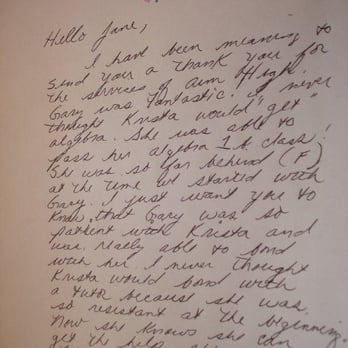 Hello Jane,
I have been meaning to
send you a thank you for
the services of Aim High.
Gary was fantastic. I never
thought Krista would "get"
algebra. She was able to
pass her algebra 1b class!
She was so far behind (F)
at the time we started with
Gary. I just want you to
know that Gary was so
patient with Krista and
was really able to bond
with her. I never thought
Krista would bond with
a tutor because she was
so resistant at the beginning.
Now she knows she can
get the help